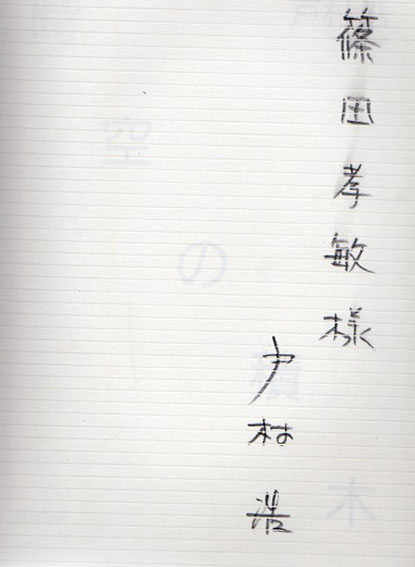 篠田孝敏様
戸村浩
空の積木